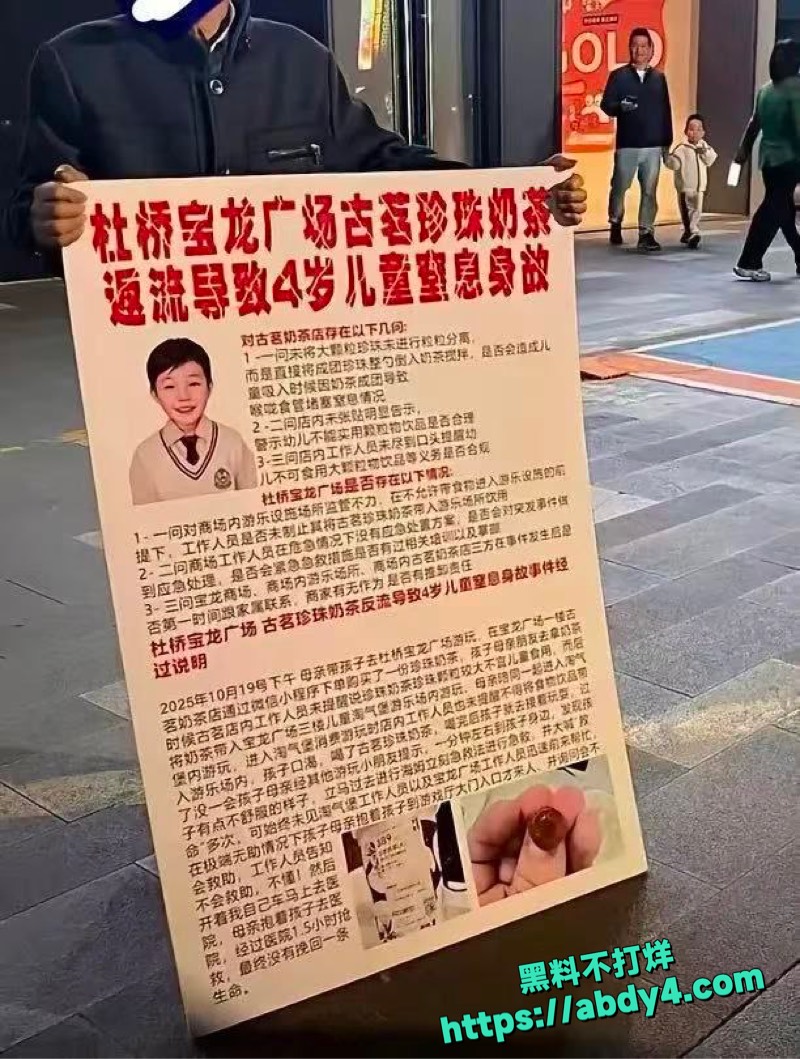 GOLD
杜桥宝龙广场古茗珍珠奶茶
返流导致4岁儿童窒息身故
对古茗奶茶店存在以下几问:
1 -一问未将大颗粒珍珠未进行粒粒分离,
而是直接将成团珍珠整勺倒入奶茶搅拌，是否会造成儿
童吸入时候因奶茶成团导致
喉咙食管堵塞窒息情况
2 -二问店内未张贴明显告示，
警示幼儿不能实用颗粒物饮品是否合理
3-三问店内工作人员未尽到口头提醒幼
儿不可食用大颗粒物饮品等义务是否合规
杜桥宝龙广场是否存在以下情况:
1- 一问对商场内游乐设施场所监管不力，在不允许带食物进入游乐设施的前
提下，工作人员是否未制止其将古茗珍珠奶茶带入游乐场所饮用
2- 二问商场工作人员在危急情况下没有应急处置方案，是否会对突发事件做
到应急处理，是否会紧急急救措施是否有过相关培训以及掌握
3- 三问宝龙商场、商场内游乐场所、商场内古茗奶茶店三方在事件发生后是
否第一时间跟家属联系，商家有无作为 是否有推卸责任
杜桥宝龙广场 古茗珍珠奶茶反流导致4岁儿童窒息身故事件经
过说明
2025年10月19号下午 母亲带孩子去杜桥宝龙广场游玩，在宝龙广场一楼古
茗奶茶店通过微信小程序下单购买了一份珍珠奶茶，孩子母亲朋友去拿奶茶
时候古茗店内工作人员未提醒说珍珠奶茶珍珠颗粒较大不宜儿童食用，而后
将奶茶带入宝龙广场三楼儿童淘气堡游乐场内游玩，母亲陪同一起进入淘气
堡内游玩，进入淘气堡消费游玩时店内工作人员也未提醒不得将食物饮品带
入游乐场内，孩子口渴，喝了古茗珍珠奶茶，喝完后孩子就去接着玩耍，过
了没一会孩子母亲经其他游玩小朋友提示，一分钟左右到孩子身边，发现孩
子有点不舒服的样子，立马过去进行海姆立刻急救法进行急救，并大喊“救
命”多次，可始终未见淘气堡工作人员以及宝龙广场工作人员迅速前来帮忙，
在极端无助情况下孩子母亲抱着孩子到游戏厅大门入口才来人，并询问会不
会救助，工作人员告知
不会救助，不懂！然后
开着我自己车马上去医
院，母亲抱着孩子去医
院，经过医院1.5小时抢
救，最终没有挽回一条
生命。
黑料不打烊
https://abdy4.com